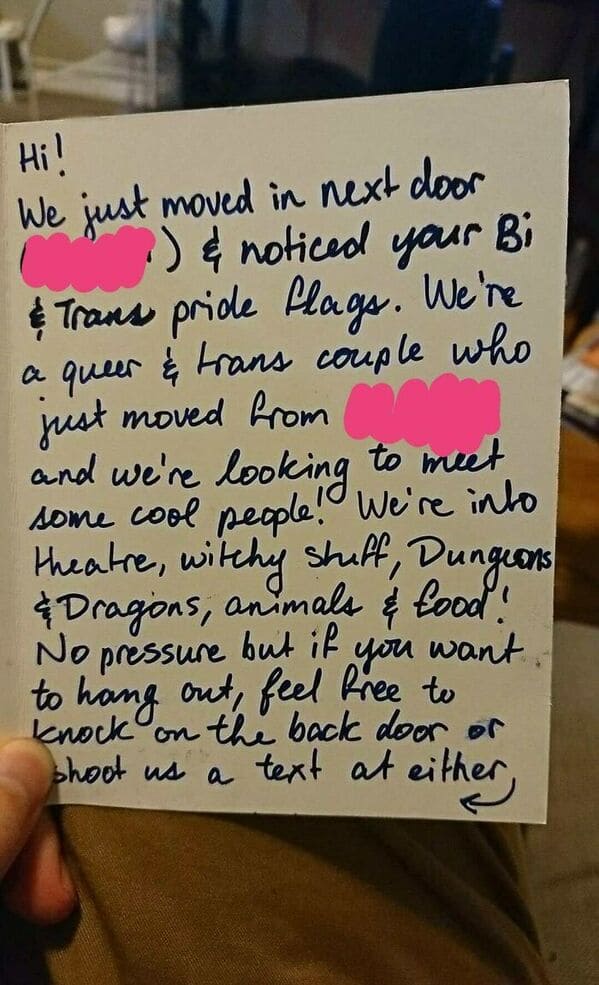 Hi!
We just moved in next door
) & noticed your Bi
& Trans pride flags. We're
a queer & trans couple who
just moved from
and we're looking to meet
some cool people! We're into
theatre, witchy stuff, Dungeons
& Dragons, animals & food!
No pressure but if you want
to hang out, feel free to
knock on the back door or
shoot us a text at either